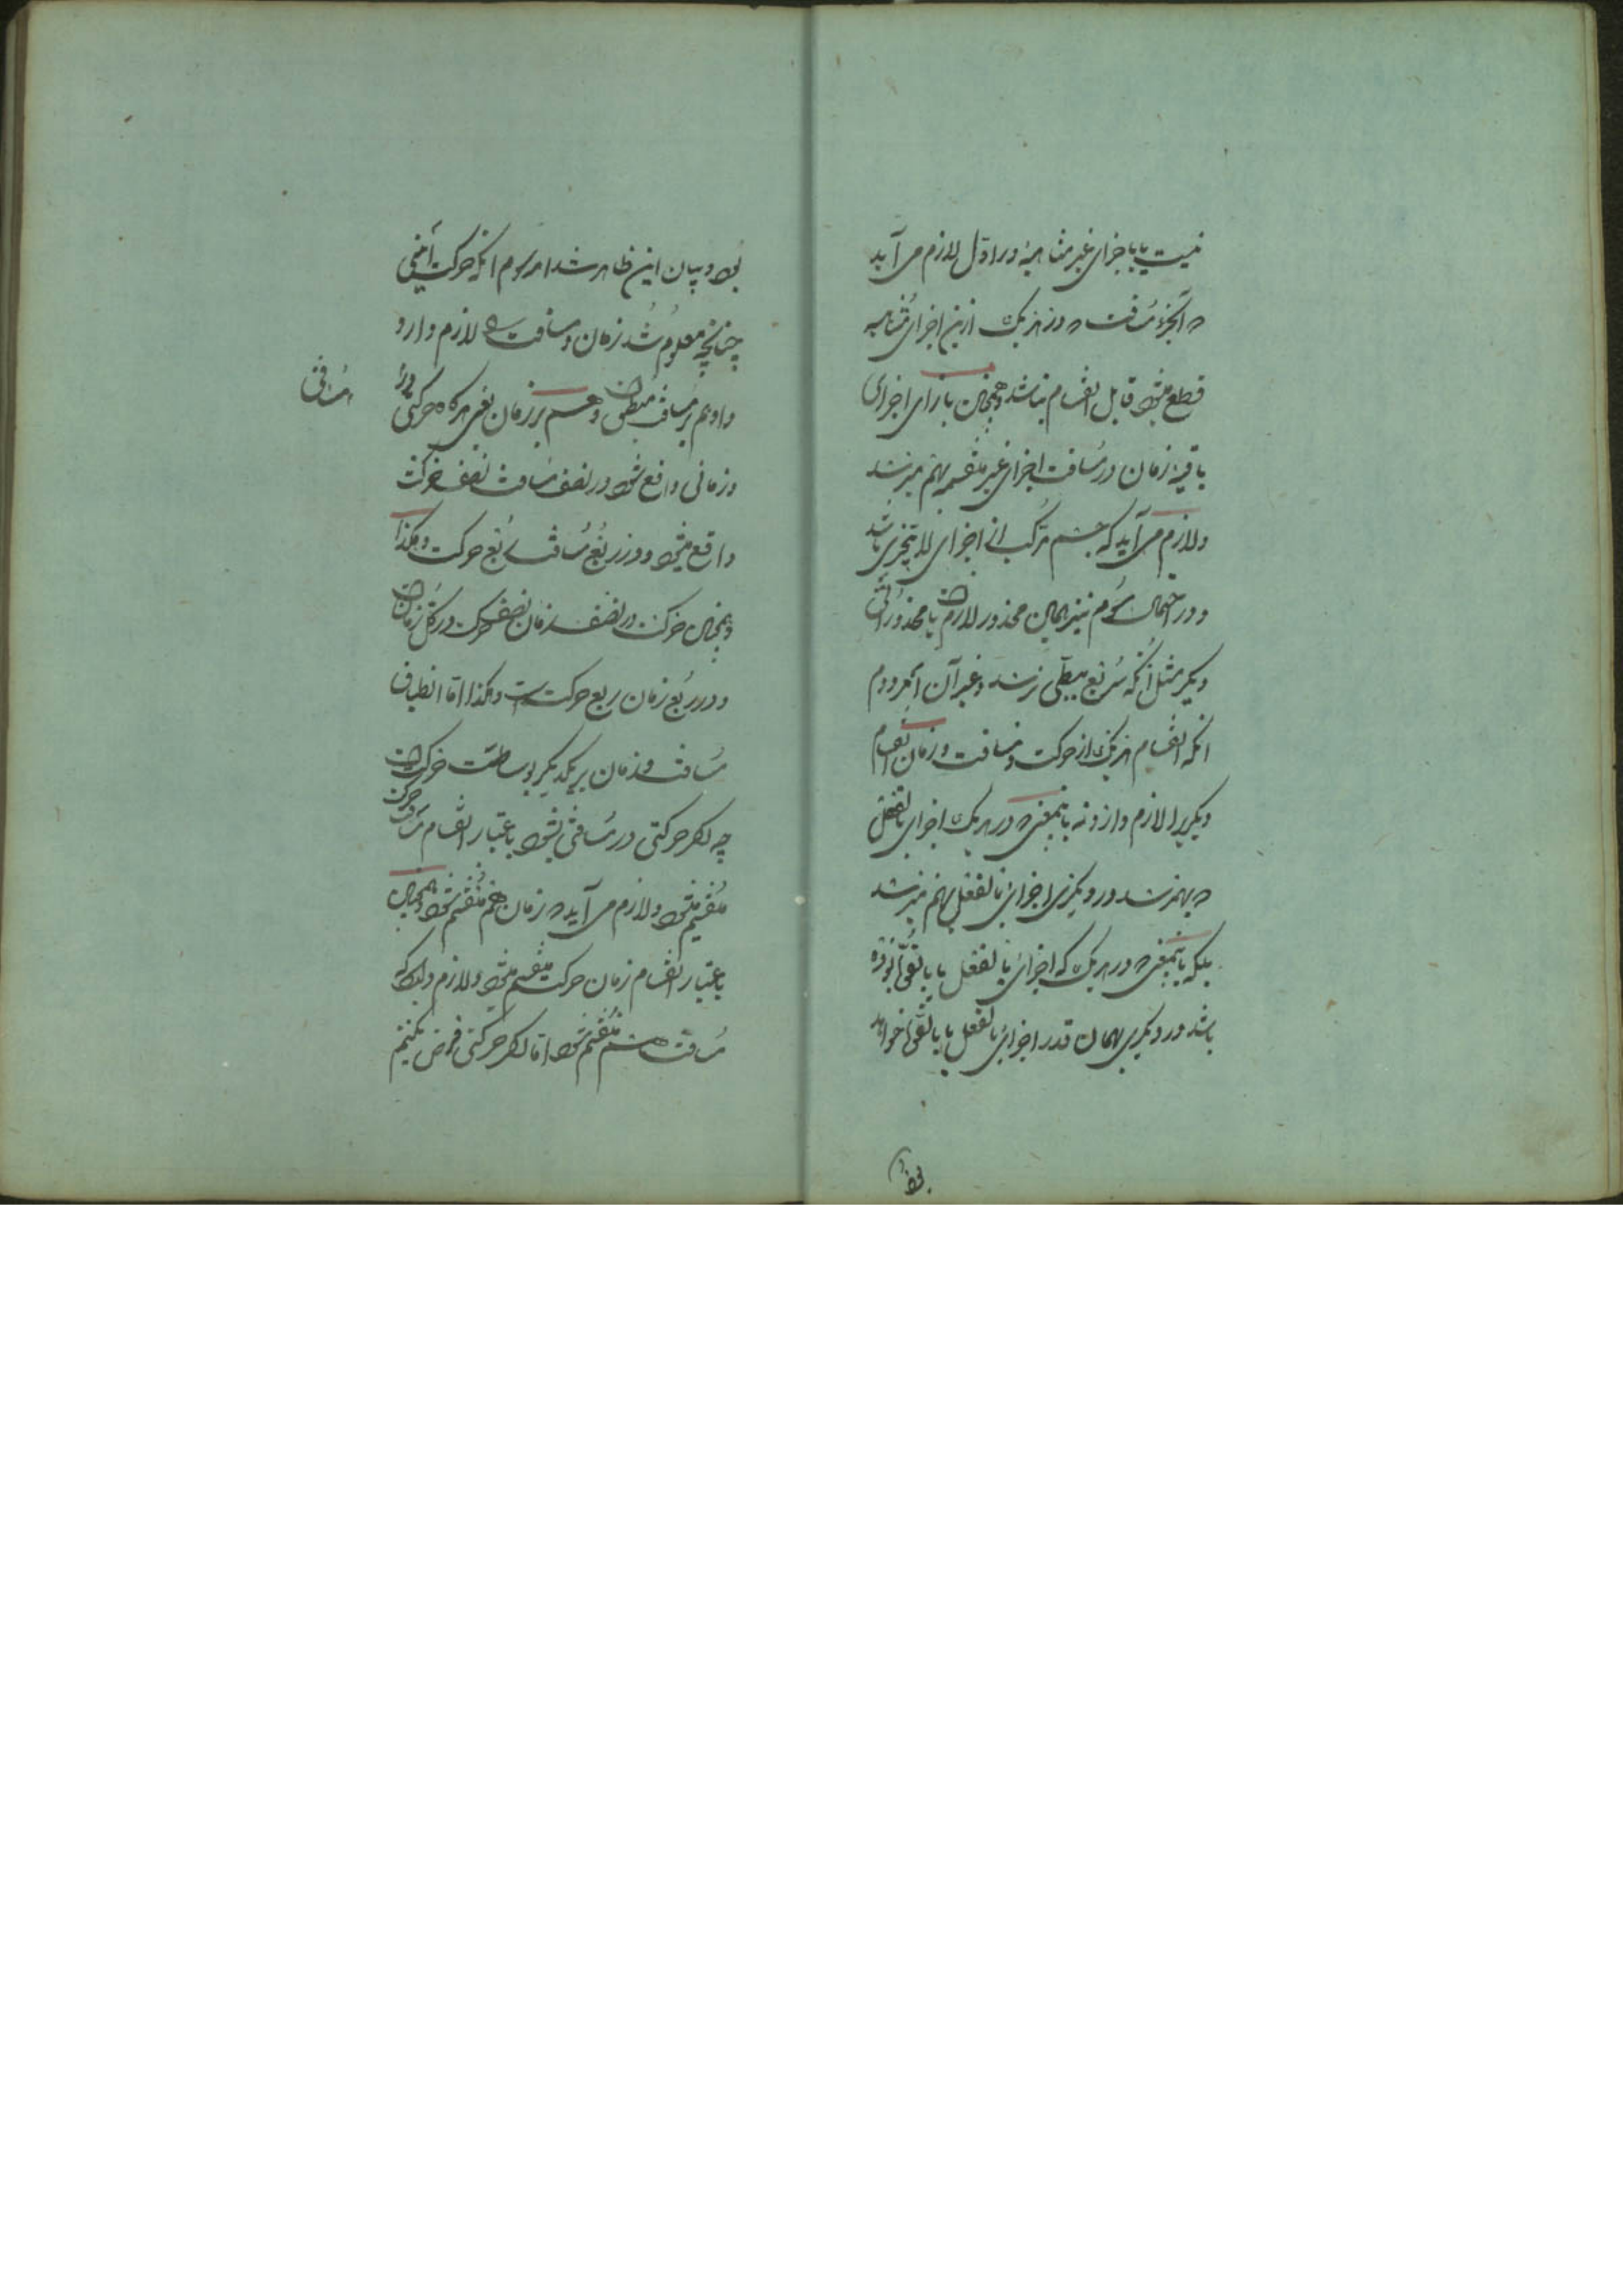 نیست یا باجزای غیر متناهیه در اول لازم می آید
که آنجزء مسافت که در هر یک ازین اجزای متناهیه
قطع میشود قابل انقسام نباشد و همچنین بازای اجزای
باقیه زمان در مسافت اجزای غیر منقسمه بهم میرسد
و لازم می آید که جسم مرکب از اجزای لایتجزی باشد
و در احتمال سوم نیز همین محذور لازمست با محذوراتی
دیگر مثل آنکه سریع ببطی نرسد و غیر آن امر دوم
آنکه انقسام هر یک از حرکت و مسافت و زمان انقسام
دیگریرا لازم دارد و نه باینمعنی که در هر یک اجزای بالفعل
که بهمرسد در دیگری اجزای بالفعل بهم میرسد
بلکه باینمعنی که در هر یک که اجزای بالفعل یا بالقوه بوده
باشد در دیگری بهمان قدر اجزای بالفعل یا بالقوه خواهد
بود
بود و بیان این ظاهر شد امر سوم آنکه حرکت اینی
چنانچه معلوم شد زمان و مسافت را لازم دارد
و او هم بر مسافت منطبق است و هم بر زمان یعنی هر گاه حرکتی در
مسافتی
و زمانی واقع شود در نصف مسافت نصف حرکت
واقع میشود و در ربع مسافت ربع حرکت و هکذا
و همچنین حرکت در نصف زمان نصف حرکت در کل زمانست
و در ربع زمان ربع حرکت است و هکذا اما انطباق
مسافت و زمان بر یکدیگر بوساطت حرکت است
چه اگر حرکتی در مسافتی بشود باعتبار انقسام مسافت حرکت
منقسم میشود و لازم می آید که زمان هم منقسم شود و همچنین
باعتبار انقسام زمان حرکت منقسم میشود و لازم دارد که
مسافت هم منقسم شود اما اگر حرکتی فرض نکنیم